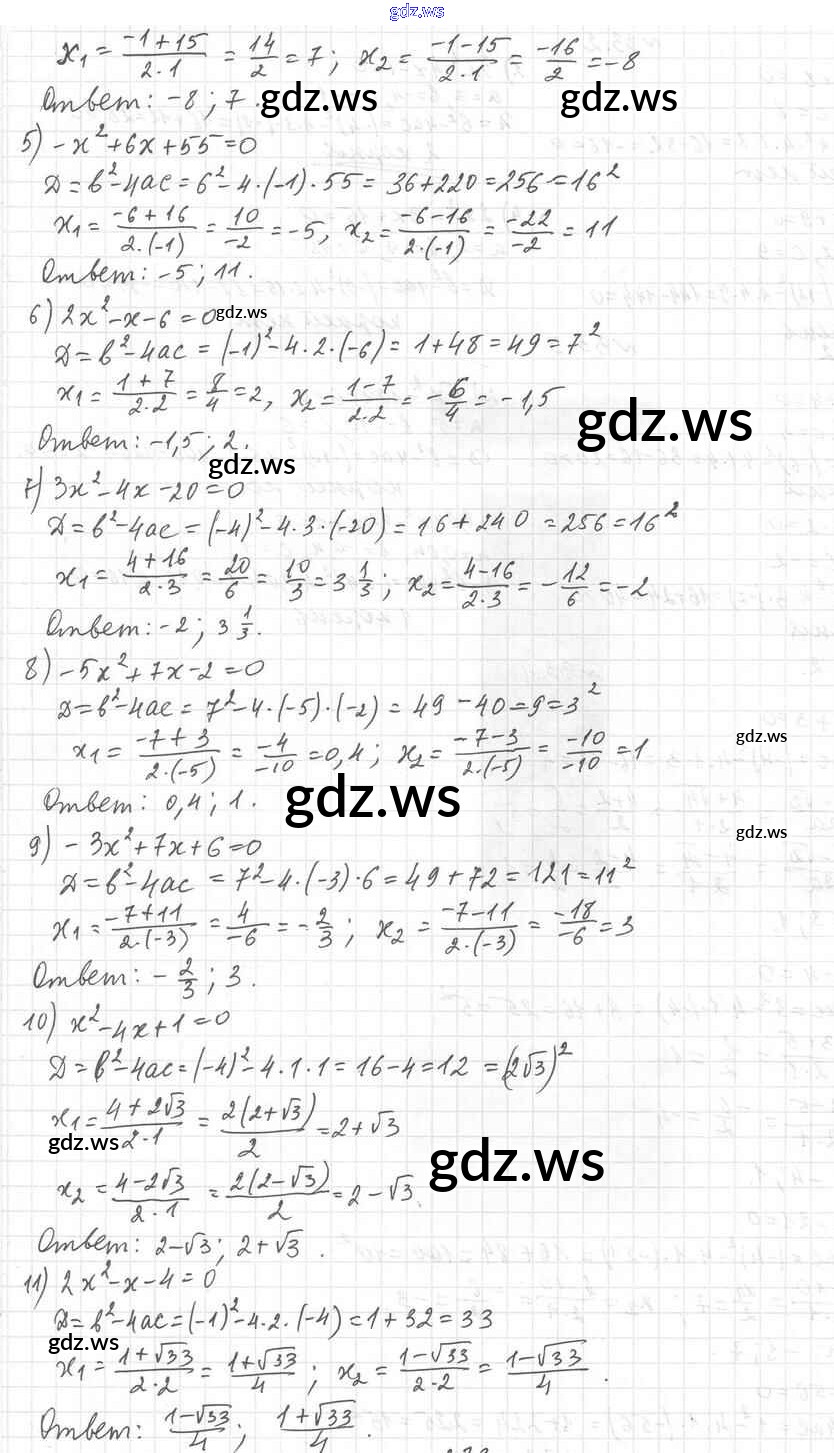 gdz.ws
x₁ = (-1+15)/(2·1) = 14/2 = 7; x₂ = (-1-15)/(2·1) = -16/2 = -8
Ответ: -8; 7.
gdz.ws gdz.ws
5) -x²+6x+55=0
Д=b²-4ac=6²-4·(-1)·55=36+220=256=16²
x₁ = (-6+16)/(2·(-1)) = 10/-2 = -5, x₂ = (-6-16)/(2·(-1)) = -22/-2 = 11
Ответ: -5; 11.
6) 2x²-x-6=0
gdz.ws
Д=b²-4ac=(-1)²-4·2·(-6)=1+48=49=7²
x₁ = (1+7)/(2·2) = 8/4 = 2, x₂ = (1-7)/(2·2) = -6/4 = -1,5
gdz.ws
Ответ: -1,5; 2.
gdz.ws
7) 3x²-4x-20=0
Д=b²-4ac=(-4)²-4·3·(-20)=16+240=256=16²
x₁ = (4+16)/(2·3) = 20/6 = 10/3 = 3 1/3; x₂ = (4-16)/(2·3) = -12/6 = -2
Ответ: -2; 3 1/3.
8) -5x²+7x-2=0
Д=b²-4ac=7²-4·(-5)·(-2)=49-40=9=3²
gdz.ws
x₁ = (-7+3)/(2·(-5)) = -4/-10 = 0,4; x₂ = (-7-3)/(2·(-5)) = -10/-10 = 1
Ответ: 0,4; 1.
gdz.ws
gdz.ws
9) -3x²+7x+6=0
Д=b²-4ac=7²-4·(-3)·6=49+72=121=11²
x₁ = (-7+11)/(2·(-3)) = 4/-6 = -2/3; x₂ = (-7-11)/(2·(-3)) = -18/-6 = 3
Ответ: -2/3; 3.
10) x²-4x+1=0
Д=b²-4ac=(-4)²-4·1·1=16-4=12=(2√3)²
x₁ = (4+2√3)/(2·1) = 2(2+√3)/2 = 2+√3
gdz.ws
gdz.ws
x₂ = (4-2√3)/(2·1) = 2(2-√3)/2 = 2-√3.
Ответ: 2-√3; 2+√3.
11) 2x²-x-4=0
Д=b²-4ac=(-1)²-4·2·(-4)=1+32=33
gdz.ws
x₁ = (1+√33)/(2·2) = (1+√33)/4; x₂ = (1-√33)/(2·2) = (1-√33)/4.
Ответ: (1-√33)/4; (1+√33)/4.